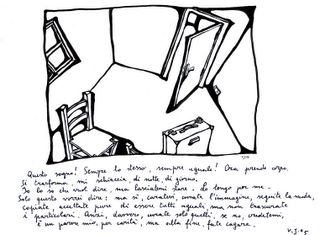 Questo sogno! Sempre lo stesso, sempre uguale! Ora prende corpo,
si trasforma, mi schiaccia, di notte, di giorno,
Io lo so che vuol dire, ma lasciatemi stare. Lo tengo per me.
Solo questo vorrei dire: ma sì, cavatevi, usate l'immagine, seguite la moda,
copiate, accettate pure di essere tutti uguali, ma non trascurate
i particolari. Anzi, davvero, usate solo quelli, se no, credetemi,
è un parere mio, per carità, ma alla fine, fate cagare.
V.J. 05